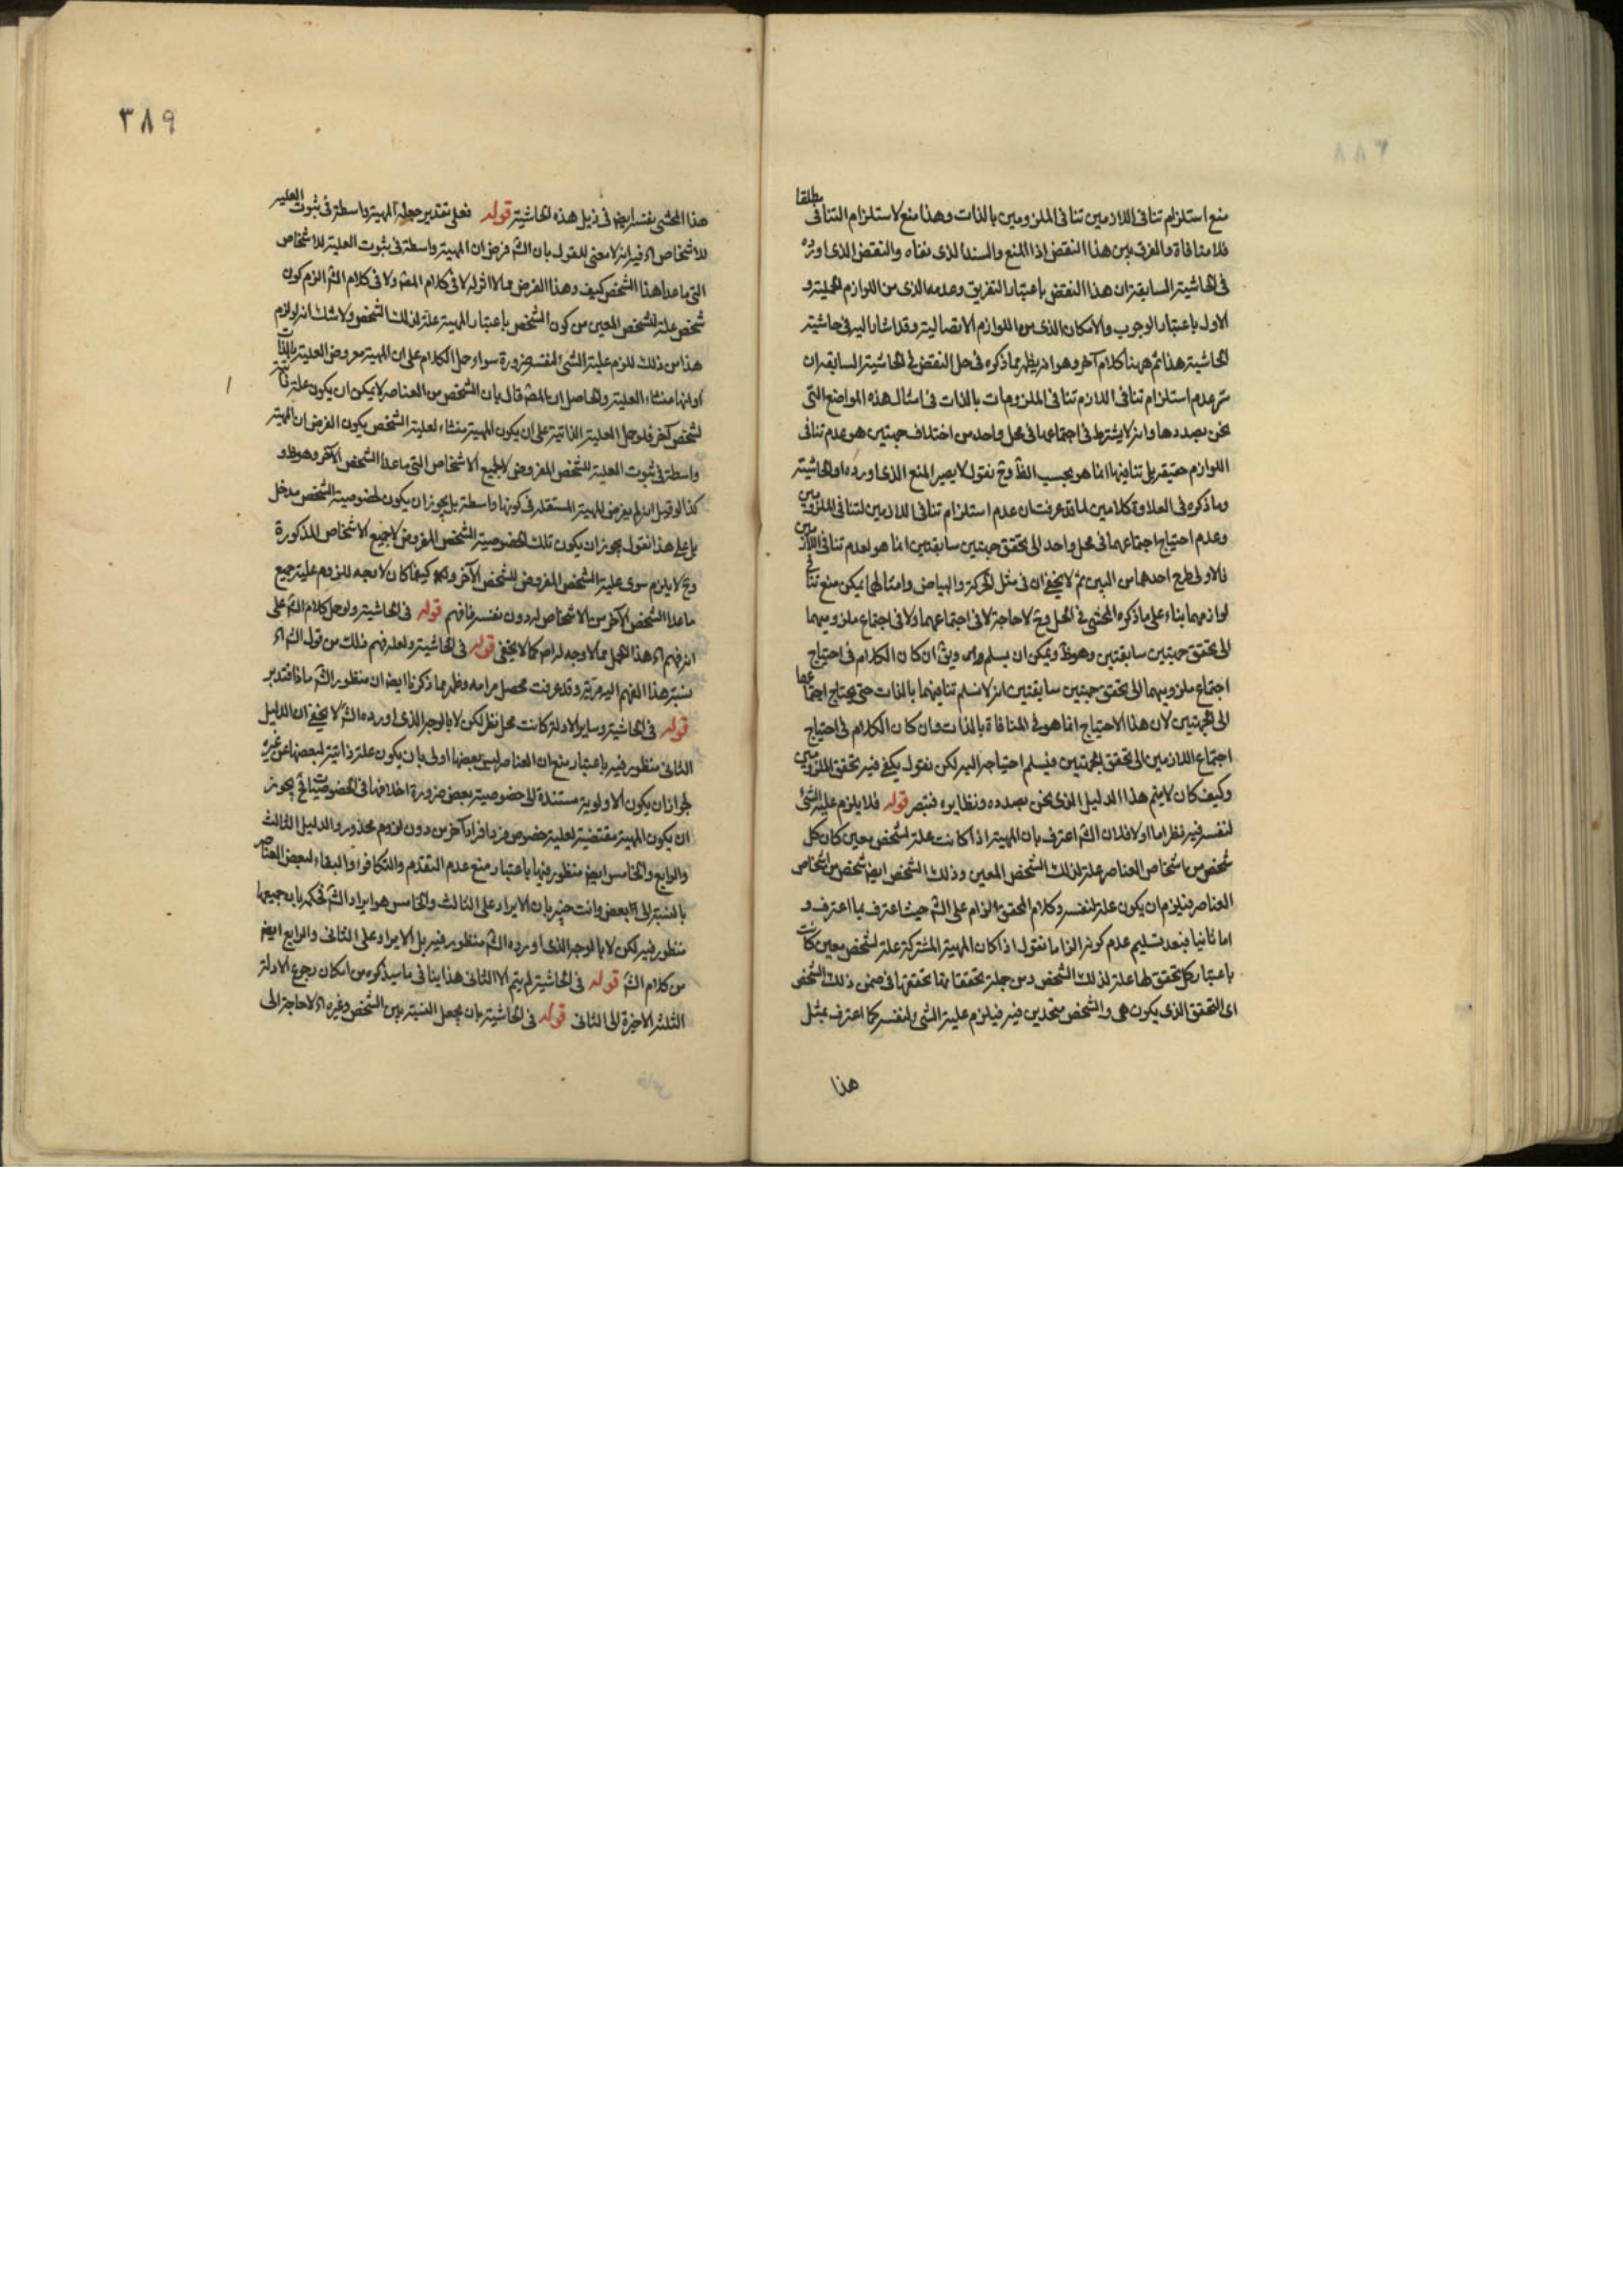 منع استلزام تنافى اللازمين تنافى الملزومين بالذات وهذا منع لاستلزام التنافى مطلقا
فلا منافاة والفرق بين هذا النقض اذا المنع والسند الذى نفاه والنقض الذى اورده
فى الحاشية السابقة ان هذا النقض باعتبار التفريق وعدمه الذى من اللوازم الحملية و
الاول باعتبار الوجوب والامكان الذى من اللوازم الاتصالية وقد اشار اليه فى حاشية
الحاشية هذا ثم ههنا كلام آخر وهو انه يظهر مما ذكره فى حل النقض فى الحاشية السابقة ان
سر عدم استلزام تنافى اللازم تنافى الملزومات بالذات فى امثال هذه المواضع التى
نحن بصددها وانه لا يشترط فى اجتماعها فى محل واحد من اختلاف جهتين هو عدم تنافى
اللوازم حقيقة بل تنافيها انما هو بحسب الظ وح نقول لا يصير المنع الذى اورده اولا لحاشية
وما ذكره فى العلاوة كلامين لما قد عرفت ان عدم استلزام تنافى اللازمين لتنافى الملزومين
وعدم احتياج اجتماعهما فى محل واحد الى تحقق جهتين سابقتين انما هو لعدم تنافى اللازمين
فالاولى طرح احدهما من البين ثم لا يخفى ان فى مثل الحركة والبياض وامثالهما يمكن منع تنافى
لوازمهما بناء على ما ذكره المحشى فى الحل وح لا حاجة لا فى اجتماعهما ولا فى اجتماع ملزوميهما
الى تحقق جهتين سابقتين وهو ظ ويمكن ان يسلم ويق ان كان الكلام فى احتياج
اجتماع ملزوميهما الى تحقق جهتين سابقتين انه لا نسلم تنافيهما بالذات حتى يحتاج اجتماعهما
الى الجهتين لان هذا الاحتياج انما هو فى المنافاة بالذات وان كان الكلام فى احتياج
اجتماع اللازمين الى تحقق الجهتين فيسلم احتياجه اليه لكن نقول يكفى فيه تحقق الملزومين
وكيف كان لا يتم هذا الدليل الذى نحن بصدده ونظايره فتبصر قوله فلا يلزم علية الشئ
لنفسه فيه نظر اما اولا فلان الش اعترف بان المهية اذا كانت علة لشخص معين كان كل
شخص من اشخاص العناصر علة لذلك الشخص المعين وذلك الشخص ايض شخص من اشخاص
العناصر فيلزم ان يكون علة لنفسه وكلام المحقق الزام على الش حيث اعترف بما اعترف و
اما ثانيا فبعد تسليم عدم كونه الزاما نقول اذا كان المهية المشتركة علة لشخص معين كانت
باعتبار كل تحقق لها علة لذلك الشخص ومن جملة تحققاتها تحققها فى ضمن ذلك الشخص
اى التحقق الذى يكون هى والشخص متحدين فيه فيلزم علية الشئ لنفسه كما اعترف بمثل
هذا
٣٨٩
هذا المحشى بنفسه ايض فى ذيل هذه الحاشية قوله فعلى تقدير جعل المهية واسطة فى ثبوت العلية
للاشخاص اه فيه انه لا معنى للقول بان الش فرض ان المهية واسطة فى ثبوت العلية للاشخاص
التى ما عدا هذا الشخص كيف وهذا الفرض مما لا اثر له لا فى كلام المص ولا فى كلام الش الزم كون
شخص علة للشخص المعين من كون الشخص باعتبار المهية علة لذلك الشخص ولا شك انه لو لزم
هذا من ذلك للزم علية الشئ لنفسه ضرورة سواء حمل الكلام على ان المهية معروض العلية بالذات
او انها منشاء العلية والحاصل ان المص قال بان الشخص من العناصر لا يمكن ان يكون علة ذاتية
لشخص آخر فلو حمل العلية الذاتية على ان يكون المهية منشاء لعلية الشخص يكون الفرض ان المهية
واسطة فى ثبوت العلية للشخص المفروض لا لجميع الاشخاص التى ما عدا الشخص الآخر وهو ظ و
كذا لو قيل انه لم يفرض للمهية المستقلة فى كونها واسطة بل يجوز ان يكون لخصوصية الشخص مدخل
بل على هذا نقول يجوز ان يكون تلك الخصوصية الشخص المفروض لا جميع الاشخاص المذكورة
وح لا يلزم سوى علية الشخص المفروض للشخص الآخر كيفما كان لا وجه للزوم علية جميع
ما عدا الشخص الآخر من الاشخاص له دون نفسه فافهم قوله فى الحاشية ولو حمل كلام الش على
انه فهم اه هذا الحمل مما لا وجه له اصلا كما لا يخفى قوله فى الحاشية ولعله فهم ذلك من قول الش اه
نسبة هذا الفهم اليه مرتين وقد عرفت محصل مرامه وظهر مما ذكرنا ايض ان منظور الش ماذا فتدبر
قوله فى الحاشية وساير الادلة كانت محل نظر لكن لا بالوجه الذى اورده الش لا يخفى ان الدليل
الثانى منظور فيه باعتبار منع ان العناصر ليس بعضها اولى بان يكون علة ذاتية لبعضها من غيره
لجواز ان يكون الاولوية مستندة الى خصوصية بعض ضرورة اختلافها فى الخصوصيات فح يجوز
ان يكون المهية مقتضية لعلية خصوص فرد افراد آخر من دون لزوم محذور والدليل الثالث
والرابع والخامس ايض منظور فيها باعتبار منع عدم التقدم والتكافؤ والبقاء لبعض العناصر
بالنسبة الى بعض وانت خبير بان الايراد على الثالث والخامس هو ايراد الش فحكمه بان جميعها
منظور فيه لكن لا بالوجه الذى اورده الش منظور فيه بل الايراد على الثانى والرابع ايض
من كلام الش قوله فى الحاشية لم يتم الا الثانى هذا ينافى ما سيذكره من امكان رجوع الادلة
الثلثة الاخيرة الى الثانى قوله فى الحاشية بان يجعل النسبة بين الشخص وغيره اه لا حاجة الى